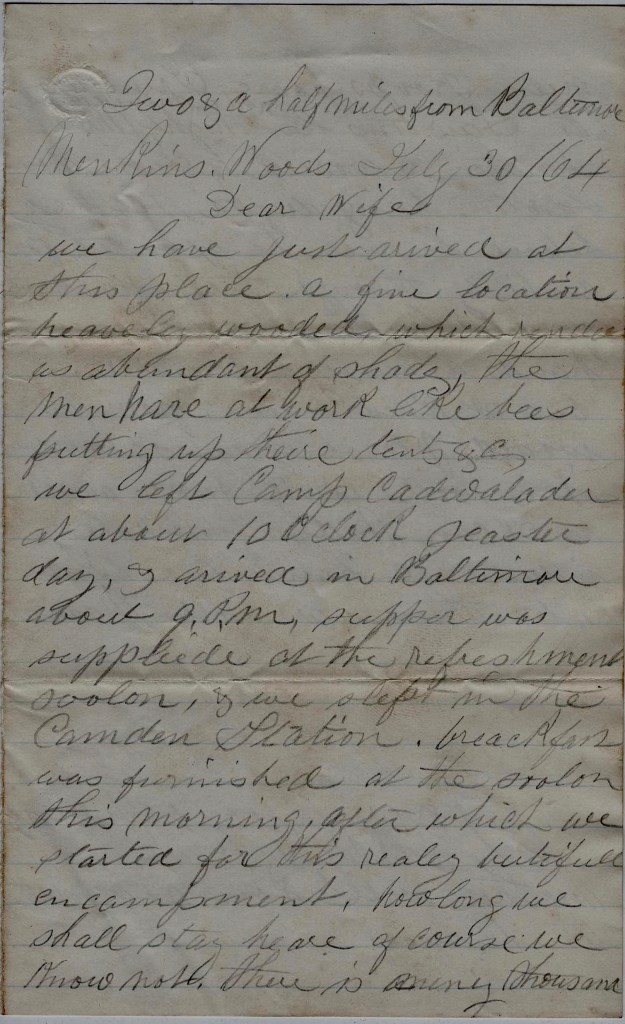 Two & a half miles from Baltimore
Menkins. Woods July 30/64
Dear Wife
we have just arived at
this place. a fine location
heaveley wooded, which
us abundant of shade, the
men hare at work like bees
putting up theire tents &c,
we left Camp Cadwalader
at about 10 O'clock yeaster
day, & arived in Baltimore
about 9. P.M, supper was
suppliede at the refreshment
soolon, & we slept in the
Camden Station. breackfast
was furnished at the soolon
this morning, after which we
started for this realey butifull
encampment, how long we
shall stay heare of course we
know not. there is meney thousand